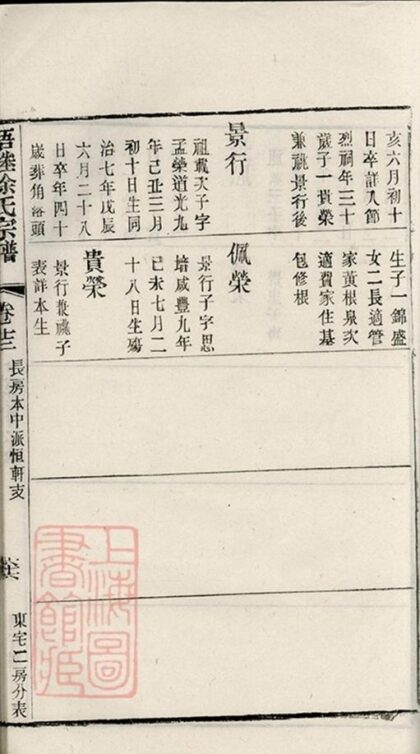 亥六月初十
日卒詳入節
烈祠年三十
歲子一貴榮
兼祧景行後
景行
祖載次子字
孟榮道光九
年己丑三月
初十日生同
治七年戊辰
六月二十八
日卒年四十
歲葬角落頭
生子一錦盛
女二長適管
家黃根泉次
適費家住基
包修根
佩榮
景行子字思
培咸豐九年
己未七月二
十八日生殤
貴榮
景行兼祧子
表詳本生
徐氏宗譜
卷十三
長房本中派恒軒支
東宅二房分表
上海圖
書館藏